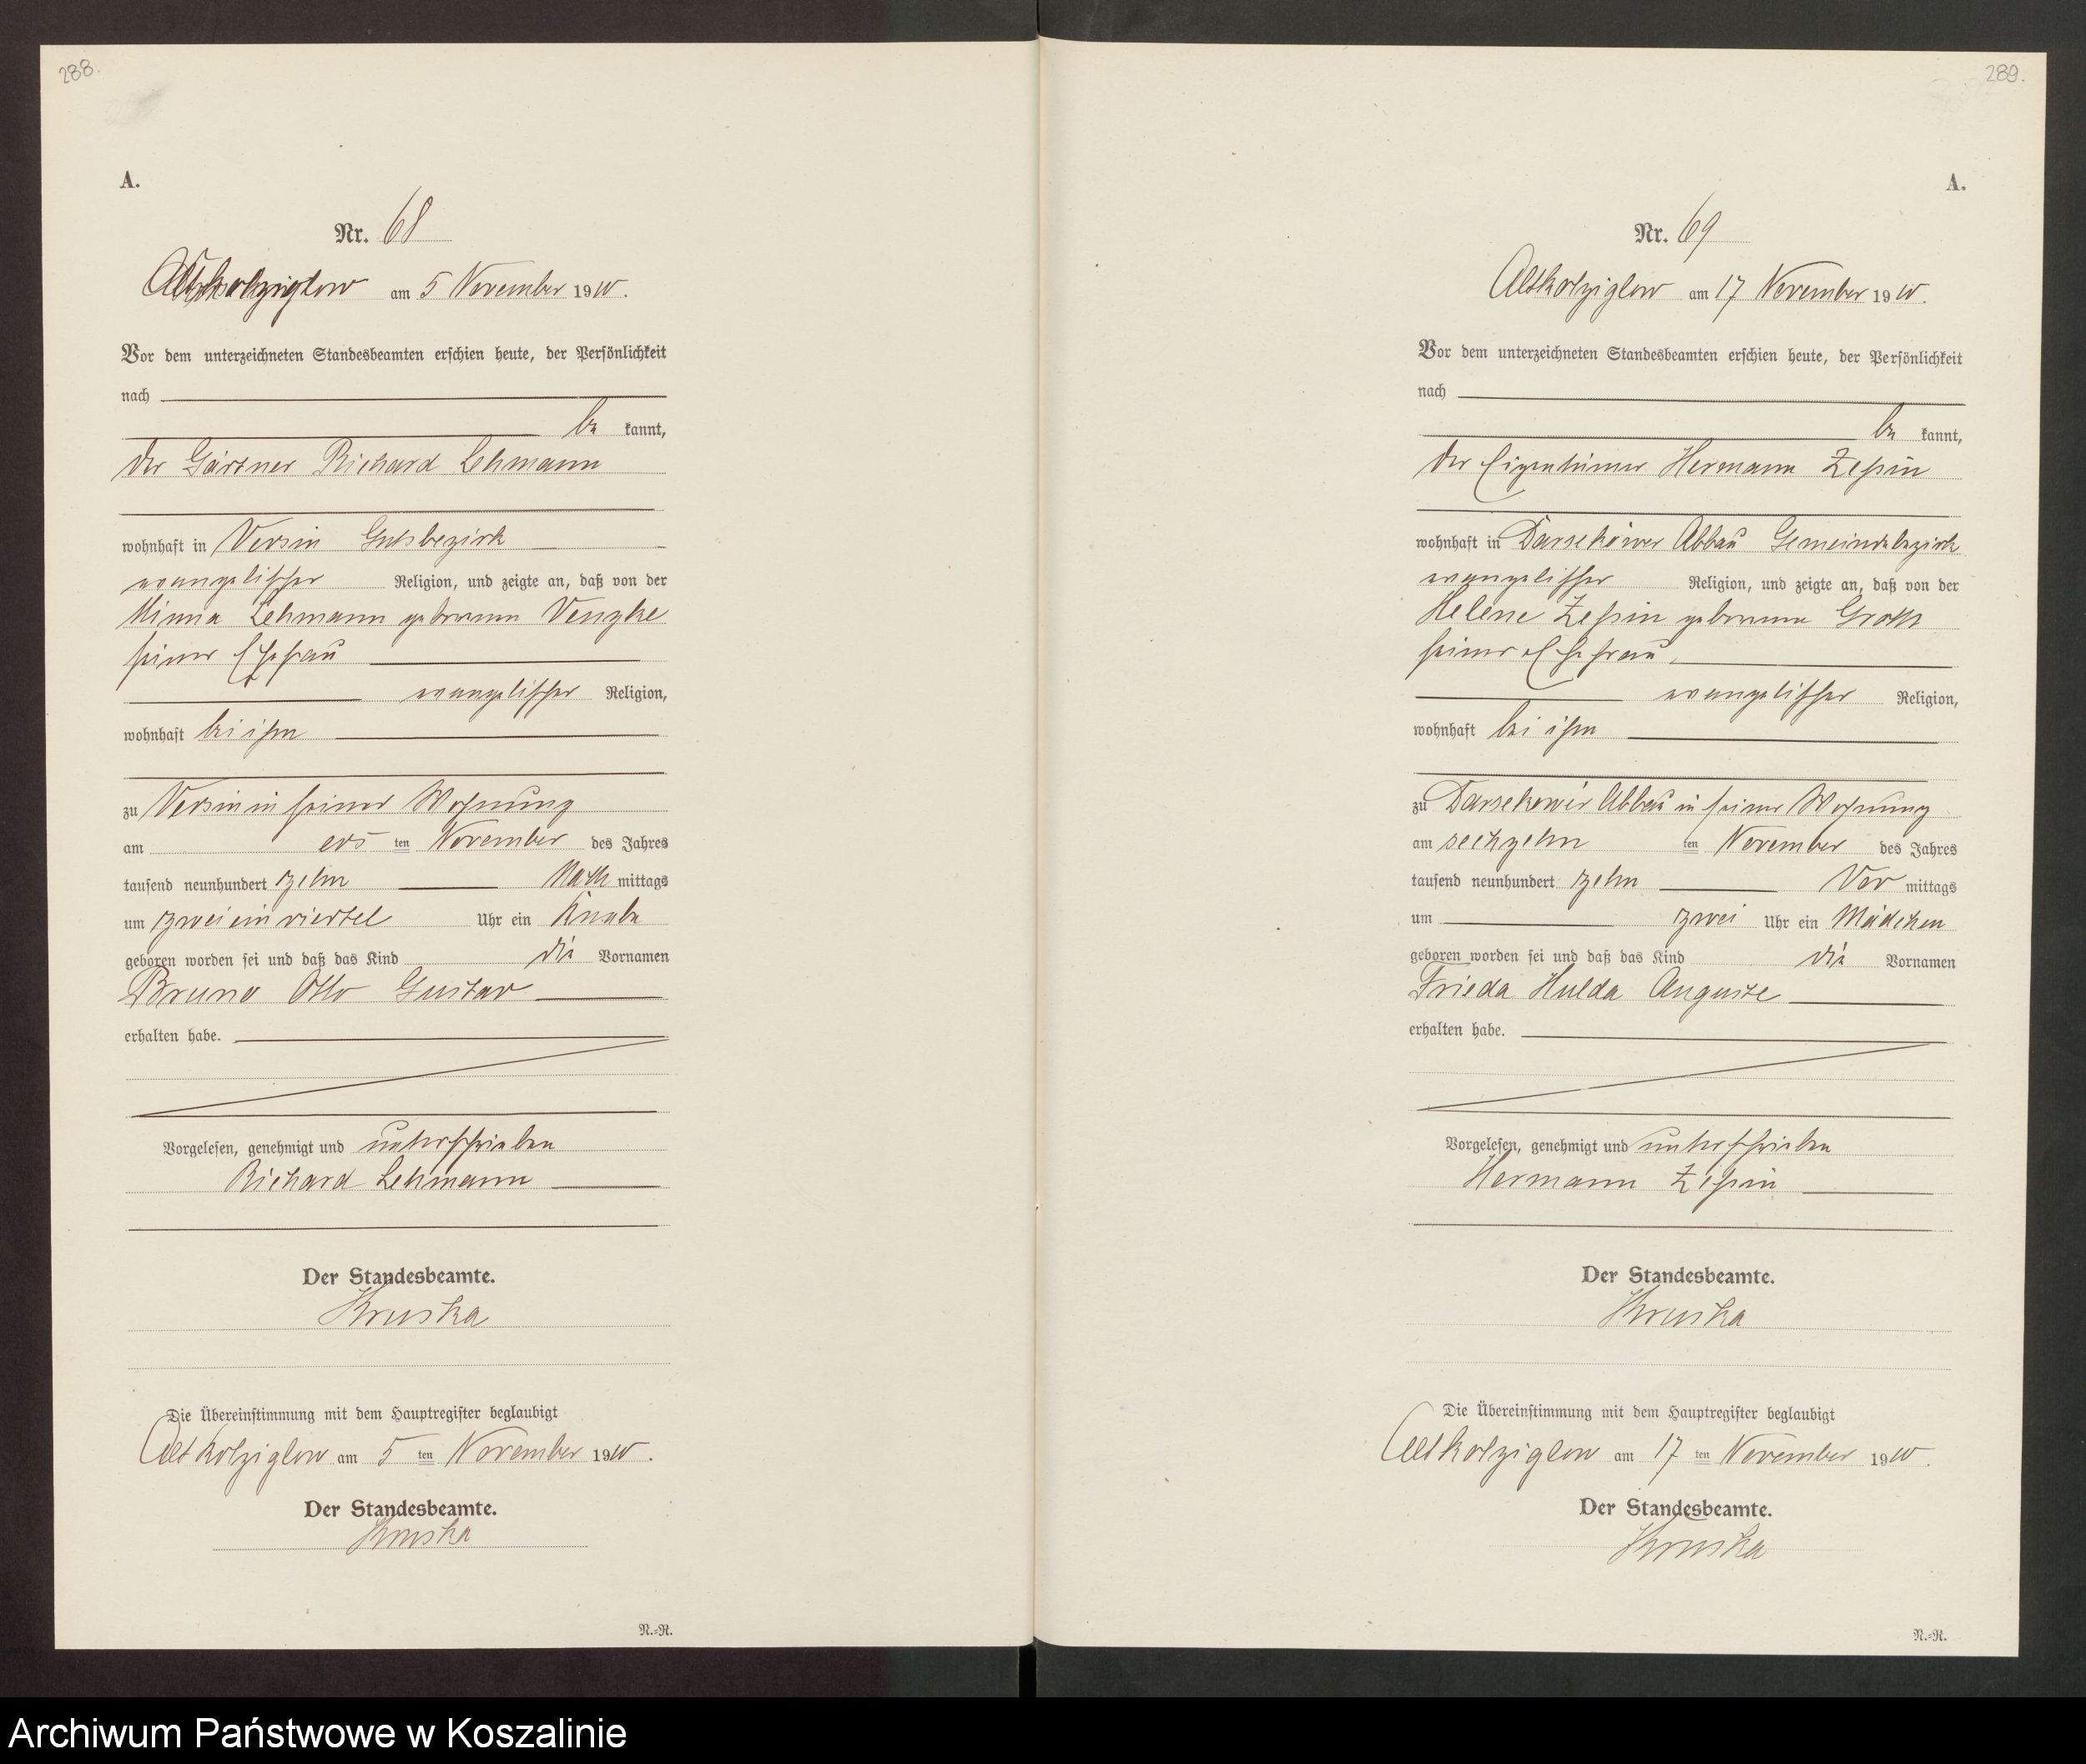 288.
A.
Nr. 68
Altkolziglow am 5 November 1910.
Vor dem unterzeichneten Standesbeamten erschien heute, der Persönlichkeit
nach
be kannt,
der Gärtner Richard Lehmann
wohnhaft in Versin Gutsbezirk
evangelischer Religion, und zeigte an, daß von der
Minna Lehmann geborenen Venzke
seiner Ehefrau
evangelischer Religion,
wohnhaft bei ihm
zu Versin in seiner Wohnung
am ers ten November des Jahres
tausend neunhundert zehn Nach mittags
um zwei ein viertel Uhr ein Knabe
geboren worden sei und daß das Kind die Vornamen
Bruno Otto Gustav
erhalten habe.
Vorgelesen, genehmigt und unterschrieben
Richard Lehmann
Der Standesbeamte.
Kruska
Die Übereinstimmung mit dem Hauptregister beglaubigt
Altkolziglow am 5 ten November 1910.
Der Standesbeamte.
Kruska
N.=R.
289.
A.
Nr. 69
Altkolziglow am 17 November 1910.
Vor dem unterzeichneten Standesbeamten erschien heute, der Persönlichkeit
nach
be kannt,
der Eigentümer Hermann Zessin
wohnhaft in Darsekow Abbau Gemeindebezirk
evangelischer Religion, und zeigte an, daß von der
Helene Zessin geborenen Groth
seiner Ehefrau,
evangelischer Religion,
wohnhaft bei ihm
zu Abbau in seiner Wohnung
am sechzehn ten November des Jahres
tausend neunhundert zehn Vor mittags
um zwei Uhr ein Mädchen
geboren worden sei und daß das Kind die Vornamen
Frieda Hulda Auguste
erhalten habe.
Vorgelesen, genehmigt und unterschrieben
Hermann Zessin
Der Standesbeamte.
Kruska
Die Übereinstimmung mit dem Hauptregister beglaubigt
Altkolziglow am 17 ten November 1910.
Der Standesbeamte.
Kruska
N.=R.
Archiwum Państwowe w Koszalinie